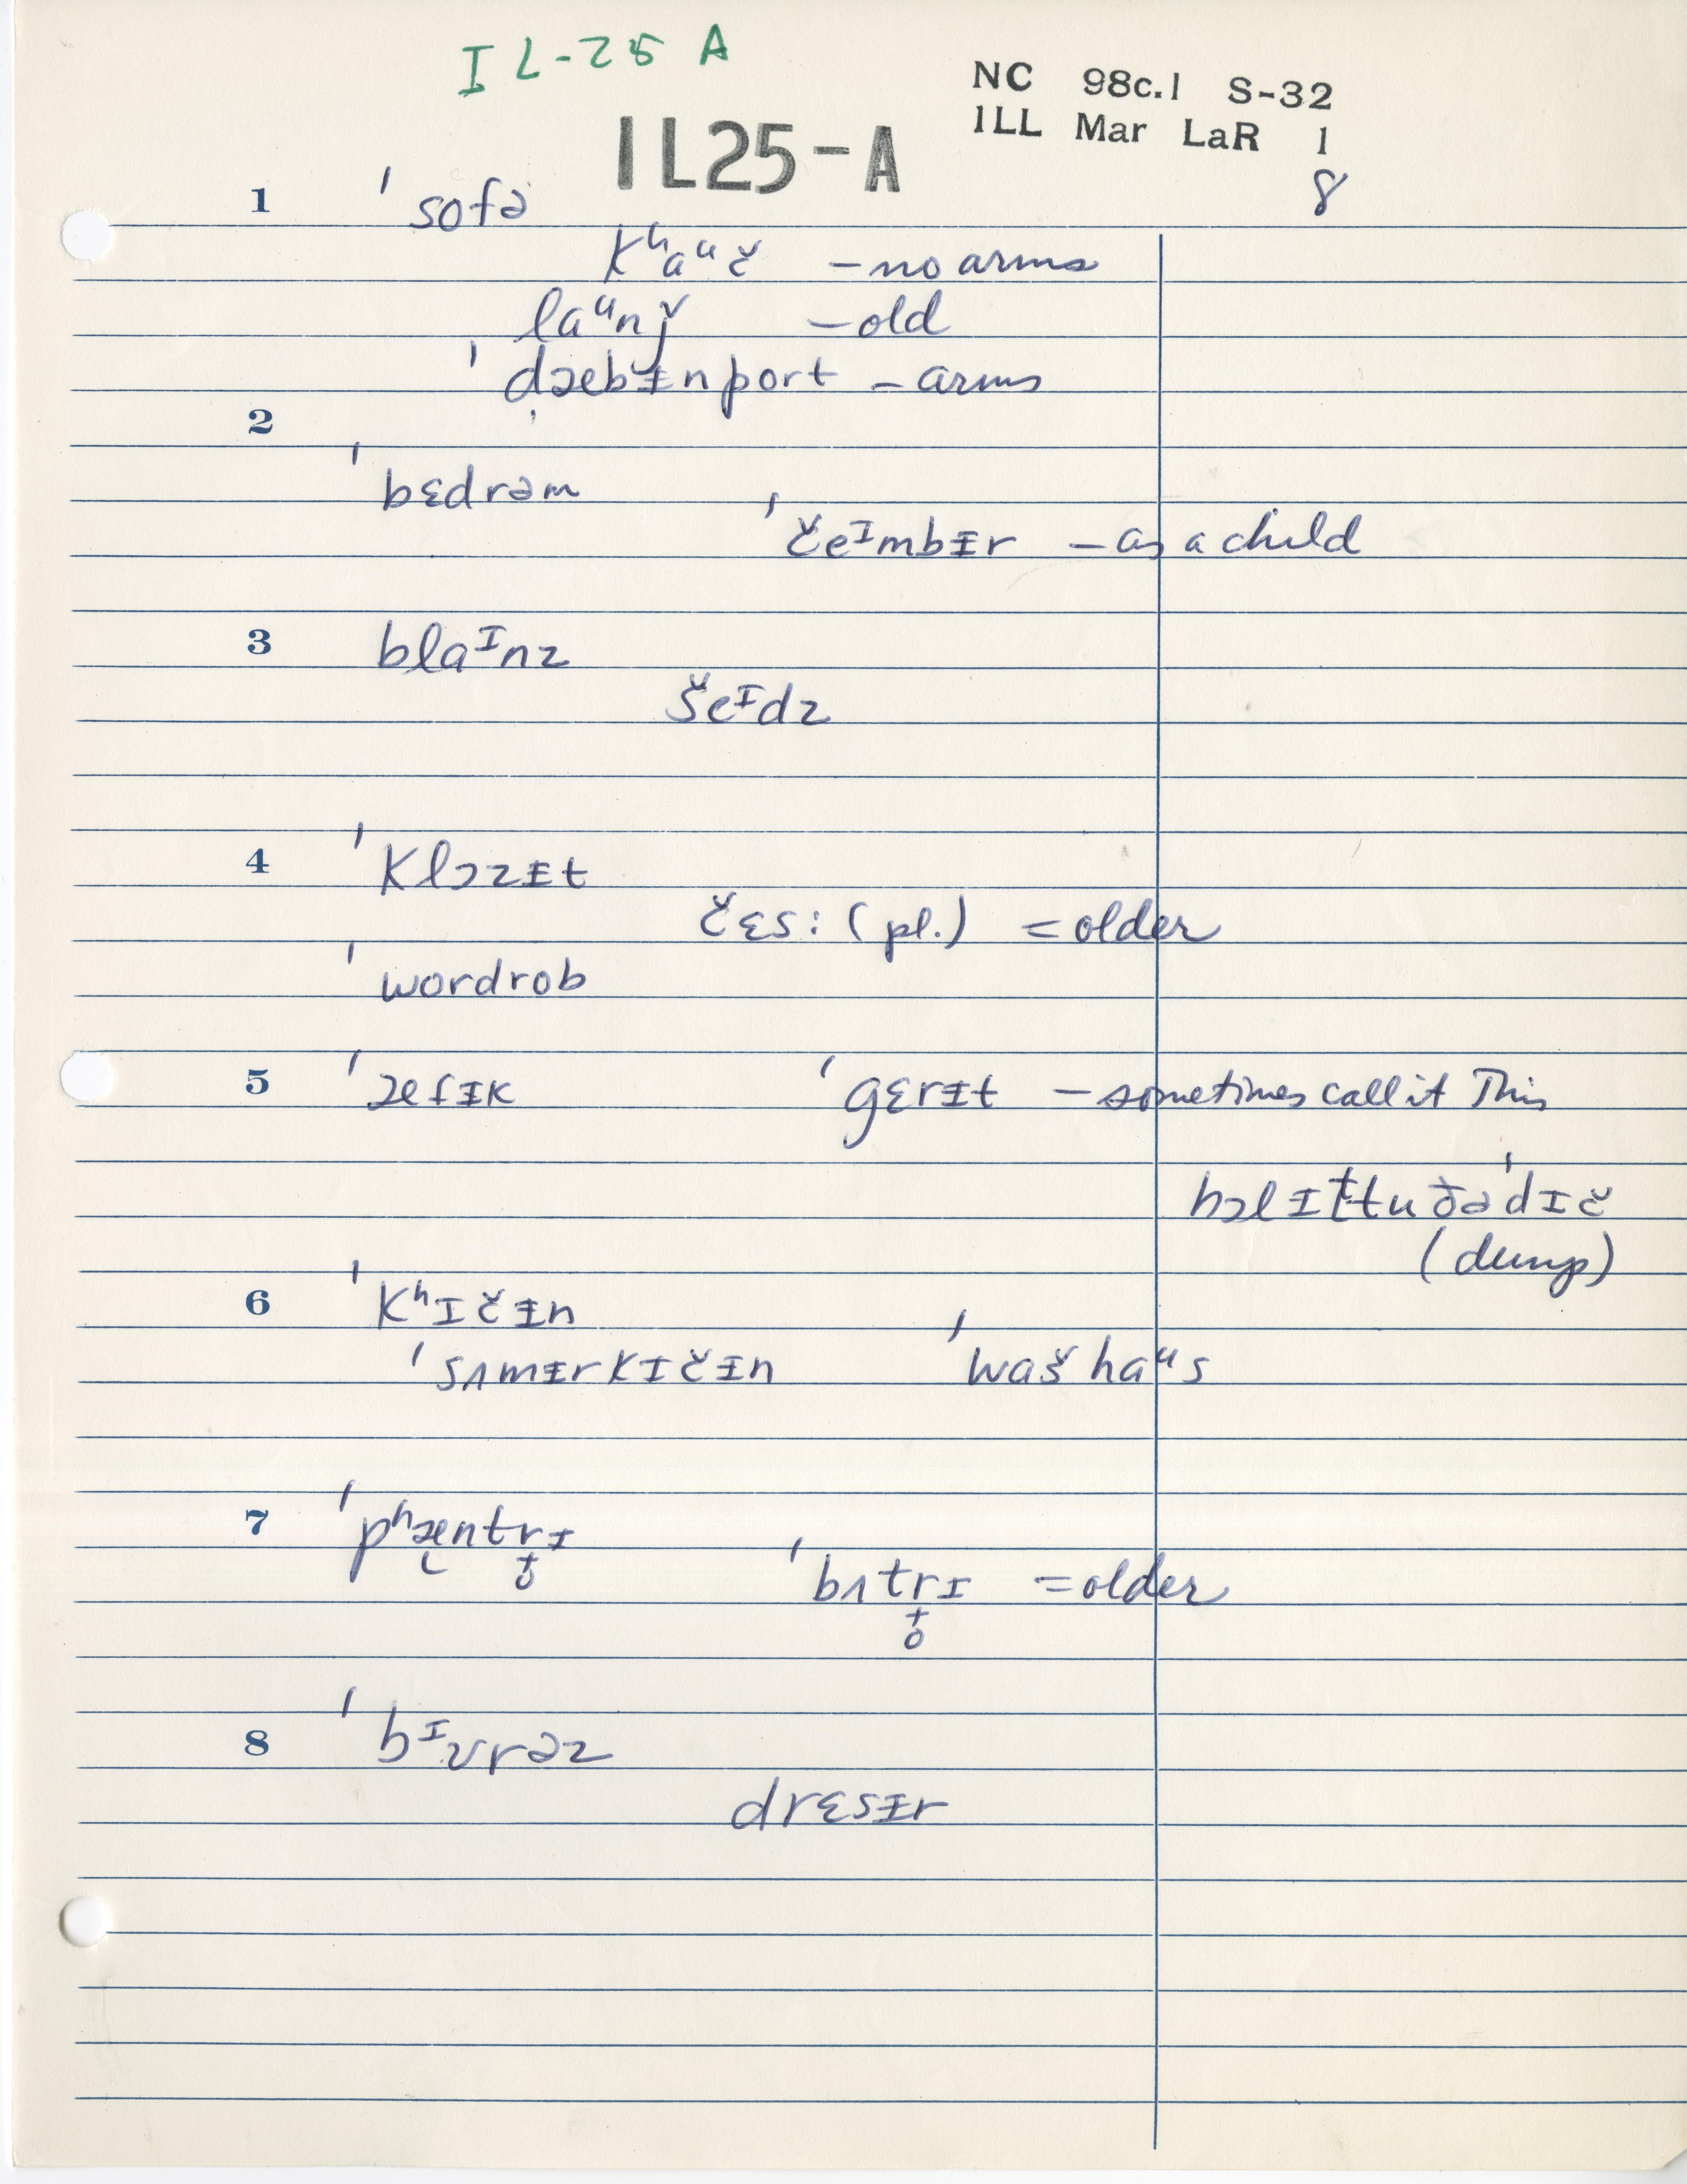 IL-25 A
NC 98c.1 S-32
ILL Mar LaR 1
IL25-A
8
1 ˈsofə
kʰaᵘč – no arms
laᵘnǰ – old
ˈdæbᵻnport – arms
2
ˈbɛdrəm
ˈčeᶦmbᵻr – as a child
3 blaᶦnz
šeᶦdz
4 ˈklɔzᵻt
čɛs: (pl.) = older
ˈwordrob
5 ˈæfᵻk ˈgɛrᵻt – sometimes call it This
hɔlɪt̯tuðəˈdɪč
(dump)
6 ˈkʰɪčᵻn
ˈsʌmᵻrkɪčᵻn ˈwašhaᵘs
7 ˈpʰæ̨ntr̥̟ɪ
ˈbʌtr̥̟ɪ = older
8 ˈbᶦʊrəz
drɛsᵻr